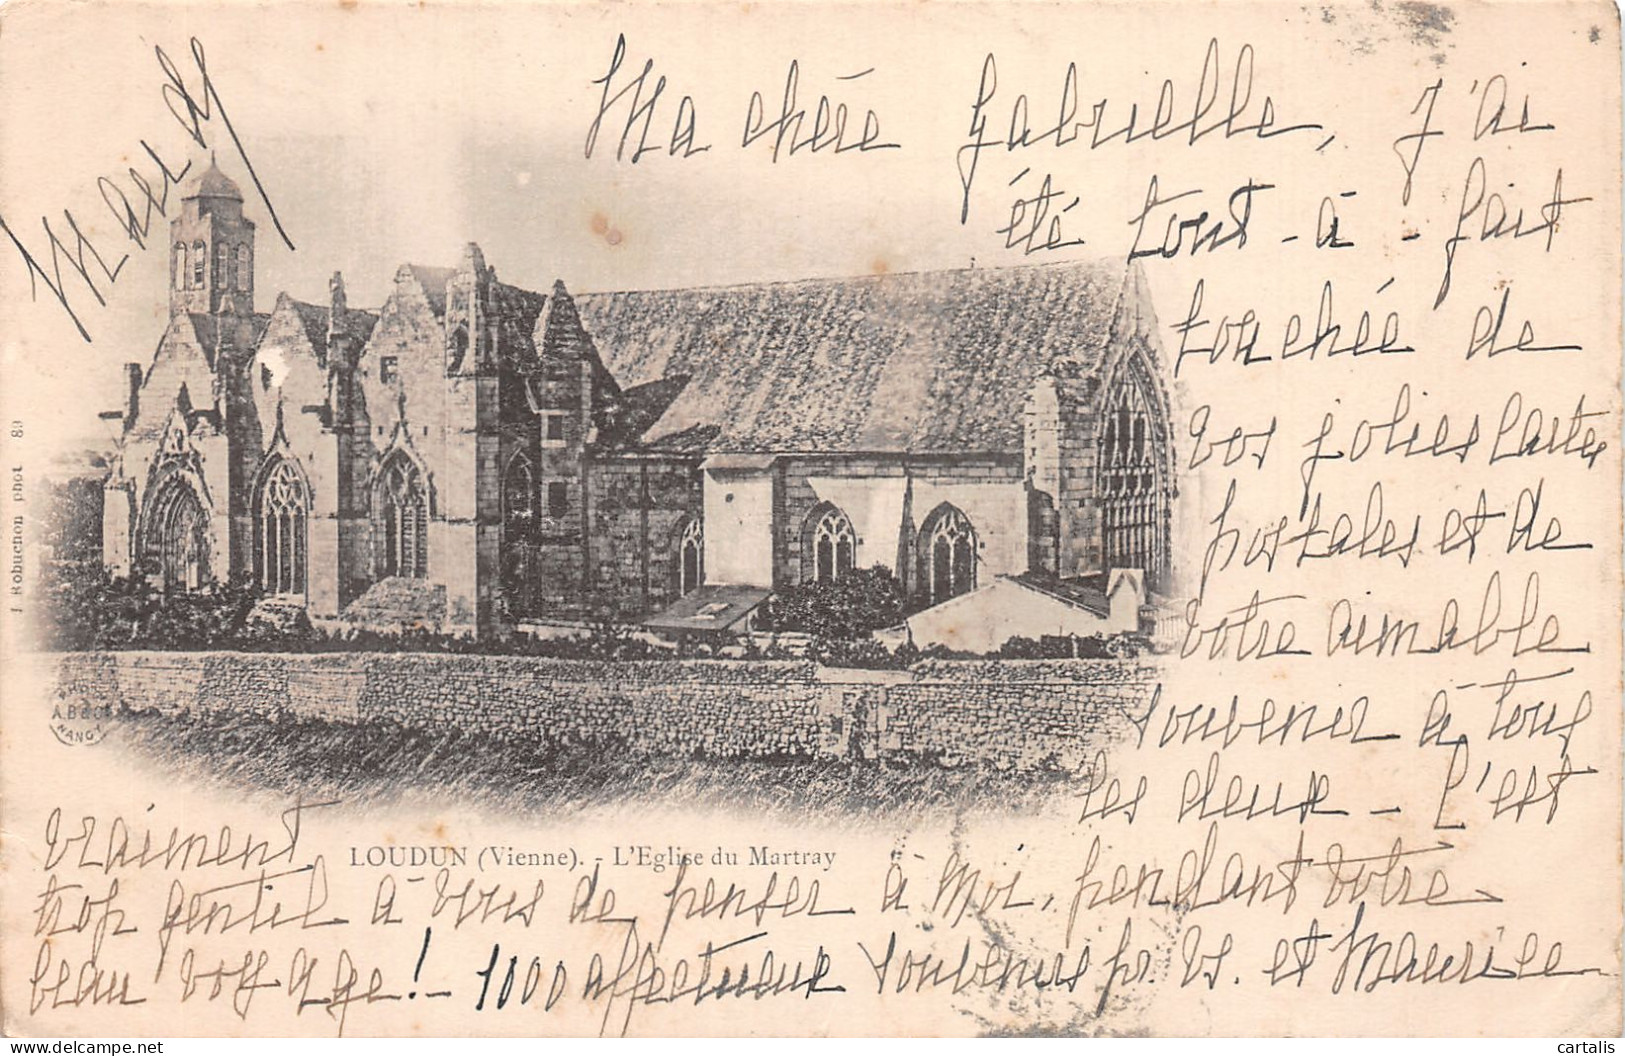 Ma chère Gabrielle, J'ai
été tout-à-fait
touchée de
vos jolies cartes
postales et de
votre aimable
souvenir à tous
les deux - C'est
vraiment
trop gentil à vous de penser à moi, pendant votre
beau voyage! - 1000 affectueux souvenirs pr. vs. et Maurice
LOUDUN (Vienne). - L'Eglise du Martray
J. Robuchon phot. 89
PHOT
A.B & C
NANCY
cartalis